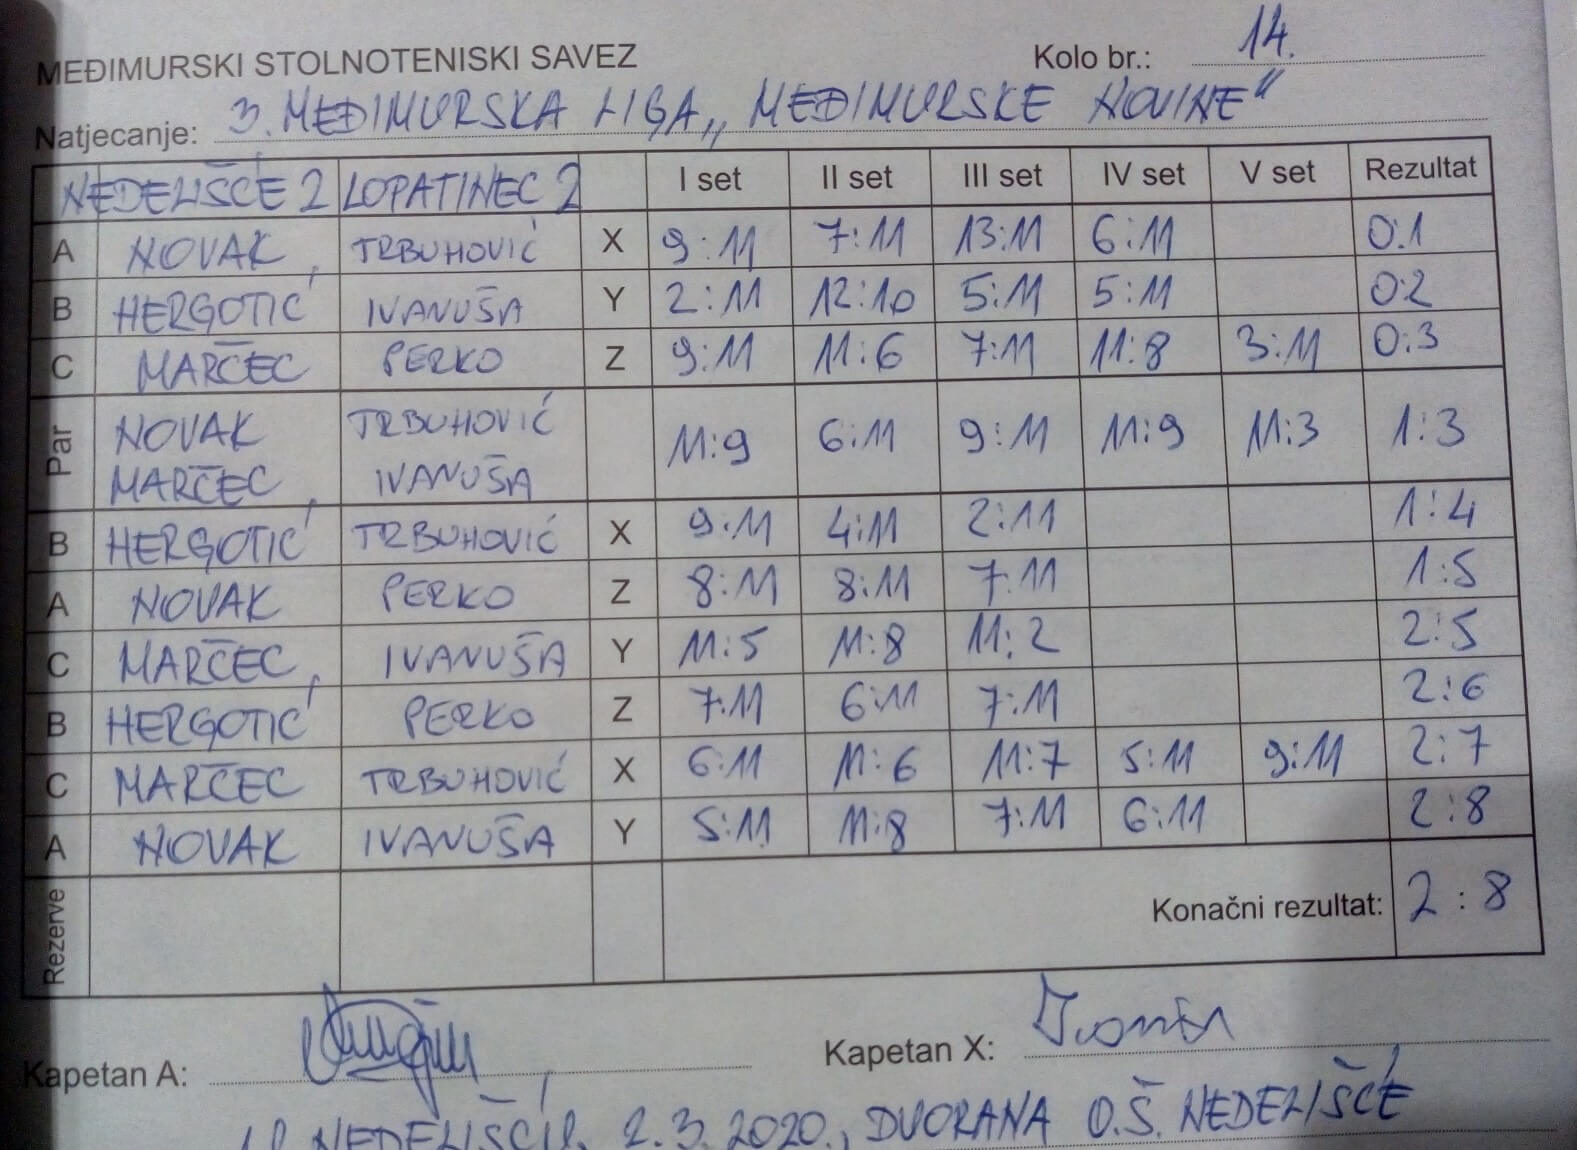 MEĐIMURSKI STOLNOTENISKI SAVEZ Kolo br.: 14.
Natjecanje: 3. MEĐIMURSKA LIGA „MEĐIMURSKE NOVINE“
NEDELIŠĆE 2 LOPATINEC 2 I set II set III set IV set V set Rezultat
A NOVAK TRBUHOVIĆ X 9:11 7:11 13:11 6:11 0:1
B HERGOTIĆ IVANUŠA Y 2:11 12:10 5:11 5:11 0:2
C MARČEC PERKO Z 9:11 11:6 7:11 11:8 3:11 0:3
Par NOVAK TRBUHOVIĆ 11:9 6:11 9:11 11:9 11:3 1:3
MARČEC IVANUŠA
B HERGOTIĆ TRBUHOVIĆ X 9:11 4:11 2:11 1:4
A NOVAK PERKO Z 8:11 8:11 7:11 1:5
C MARČEC IVANUŠA Y 11:5 11:8 11:2 2:5
B HERGOTIĆ PERKO Z 7:11 6:11 7:11 2:6
C MARČEC TRBUHOVIĆ X 6:11 11:6 11:7 5:11 9:11 2:7
A NOVAK IVANUŠA Y 5:11 11:8 7:11 6:11 2:8
Rezerve Konačni rezultat: 2:8
Kapetan A: Kapetan X:
NEDELIŠĆU, 2.3.2020., DVORANA O.Š. NEDELIŠĆE